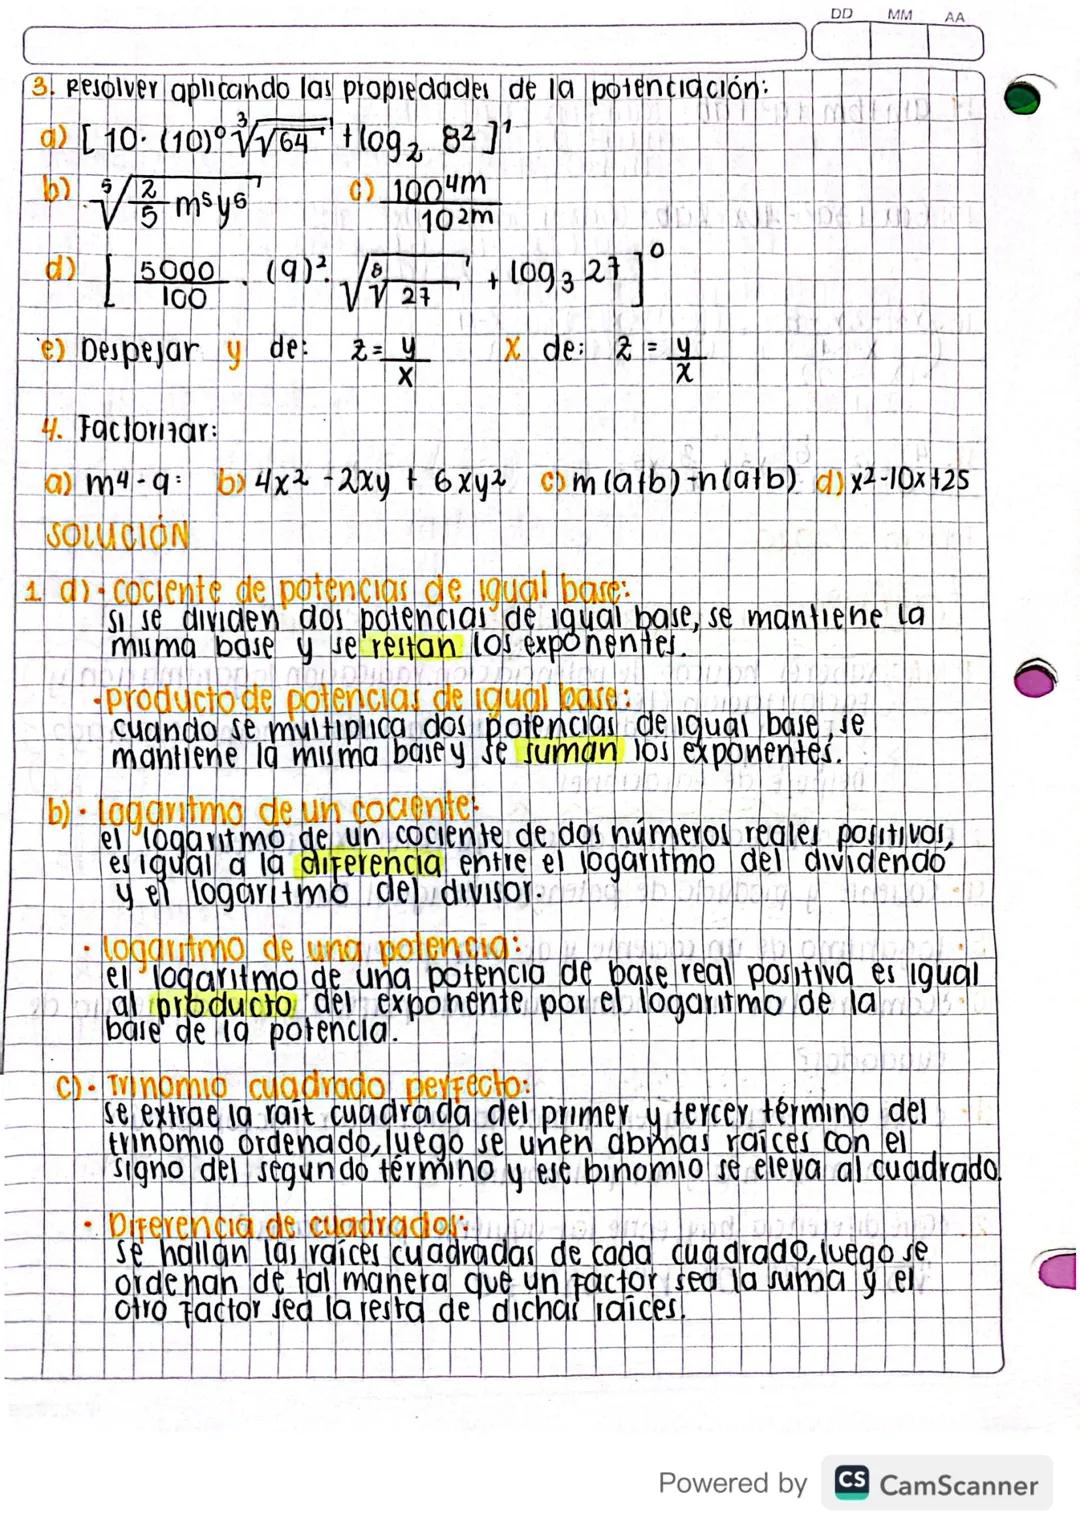 DD MM AA
3. Resolver aplicando las propiedades de la potenciación:
a) [ 10 · (10)⁰ ∛√64 + log₂ 8² ]¹
b) ⁵√(2/5 m⁵y⁶) c) 100⁴ᵐ / 10²ᵐ
d) [ 5000/100 · (9)² · √⁶√27 + log₃ 27 ]⁰
e) Despejar y de: z = y/x x de: z = y/x
4. Factorizar:
a) m⁴ - 9: b) 4x² - 2xy + 6xy² c) m(a+b) - n(a+b) d) x² - 10x + 25
SOLUCIÓN
1 a) · cociente de potencias de igual base:
si se dividen dos potencias de igual base, se mantiene la
misma base y se restan los exponentes.
· producto de potencias de igual base:
cuando se multiplica dos potencias de igual base, se
mantiene la misma base y se suman los exponentes.
b) · logaritmo de un cociente:
el logaritmo de un cociente de dos números reales positivos,
es igual a la diferencia entre el logaritmo del dividendo
y el logaritmo del divisor.
· logaritmo de una potencia:
el logaritmo de una potencia de base real positiva es igual
al producto del exponente por el logaritmo de la
base de la potencia.
c) · Trinomio cuadrado perfecto:
se extrae la raíz cuadrada del primer y tercer término del
trinomio ordenado, luego se unen abmas raíces con el
signo del segundo término y ese binomio se eleva al cuadrado.
· Diferencia de cuadrados:
se hallan las raíces cuadradas de cada cuadrado, luego se
ordenan de tal manera que un factor sea la suma y el
otro factor sea la resta de dichas raíces.
Powered by CS CamScanner